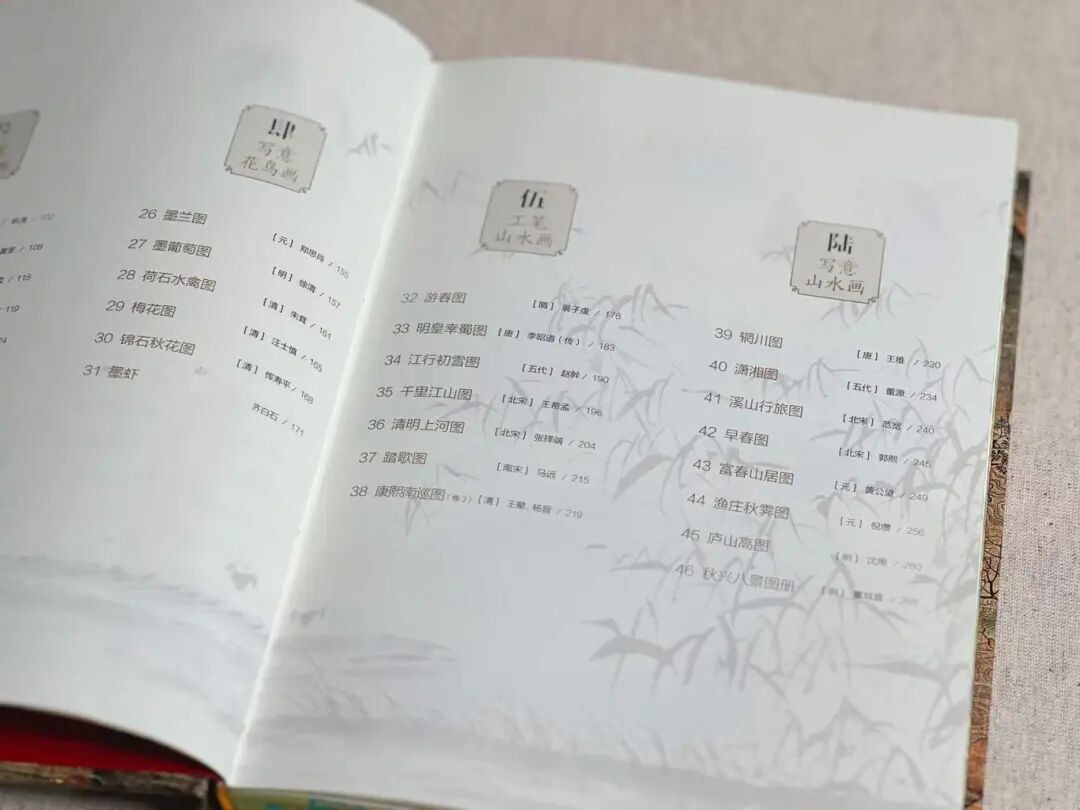 108
115
119
肆
写意
花鸟画
26 墨兰图 [元] 郑思肖 / 155
27 墨葡萄图 [明] 徐渭 / 157
28 荷石水禽图 [清] 朱耷 / 161
29 梅花图 [清] 汪士慎 / 165
30 锦石秋花图 [清] 恽寿平 / 168
31 墨虾 齐白石 / 171
伍
工笔
山水画
32 游春图 [隋] 展子虔 / 178
33 明皇幸蜀图 [唐] 李昭道(传) / 183
34 江行初雪图 [五代] 赵幹 / 190
35 千里江山图 [北宋] 王希孟 / 196
36 清明上河图 [北宋] 张择端 / 204
37 踏歌图 [南宋] 马远 / 215
38 康熙南巡图(卷3) [清] 王翚、杨晋 / 219
陆
写意
山水画
39 辋川图 [唐] 王维 / 230
40 潇湘图 [五代] 董源 / 234
41 溪山行旅图 [北宋] 范宽 / 240
42 早春图 [北宋] 郭熙 / 245
43 富春山居图 [元] 黄公望 / 249
44 渔庄秋霁图 [元] 倪瓒 / 256
45 庐山高图 [明] 沈周 / 260
46 秋兴八景图册 [明] 董其昌 / 265